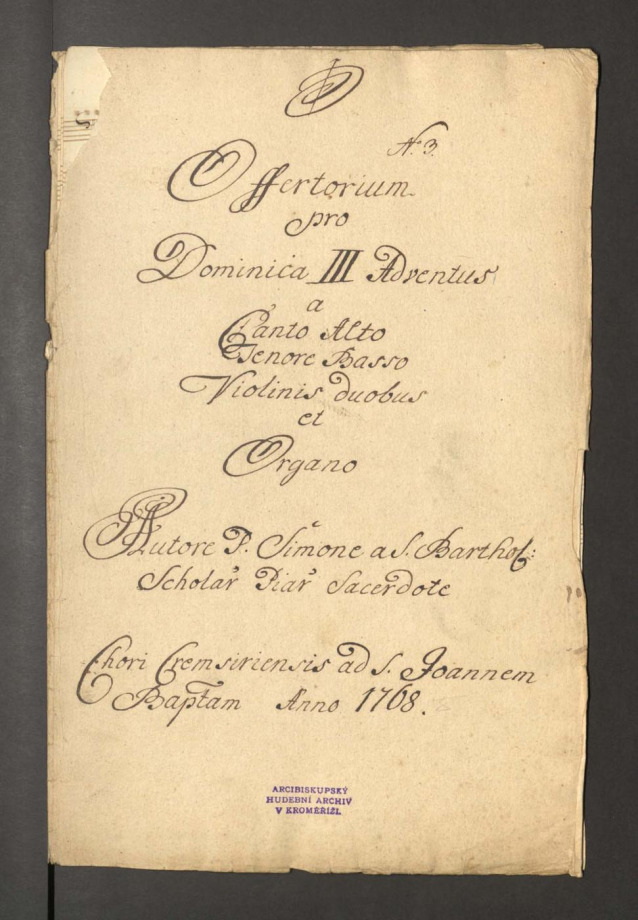 N. 3.
Offertorium
pro
Dominica III Adventus
a
Canto Alto
Tenore Basso
Violinis duobus
et
Organo
Autore P. Simone a S. Barthol:
Scholar Piar Sacerdote
Chori Cremsiriensis ad S. Joannem
Baptam Anno 1768.
ARCIBISKUPSKÝ
HUDEBNÍ ARCHIV
V KROMĚŘÍŽI.